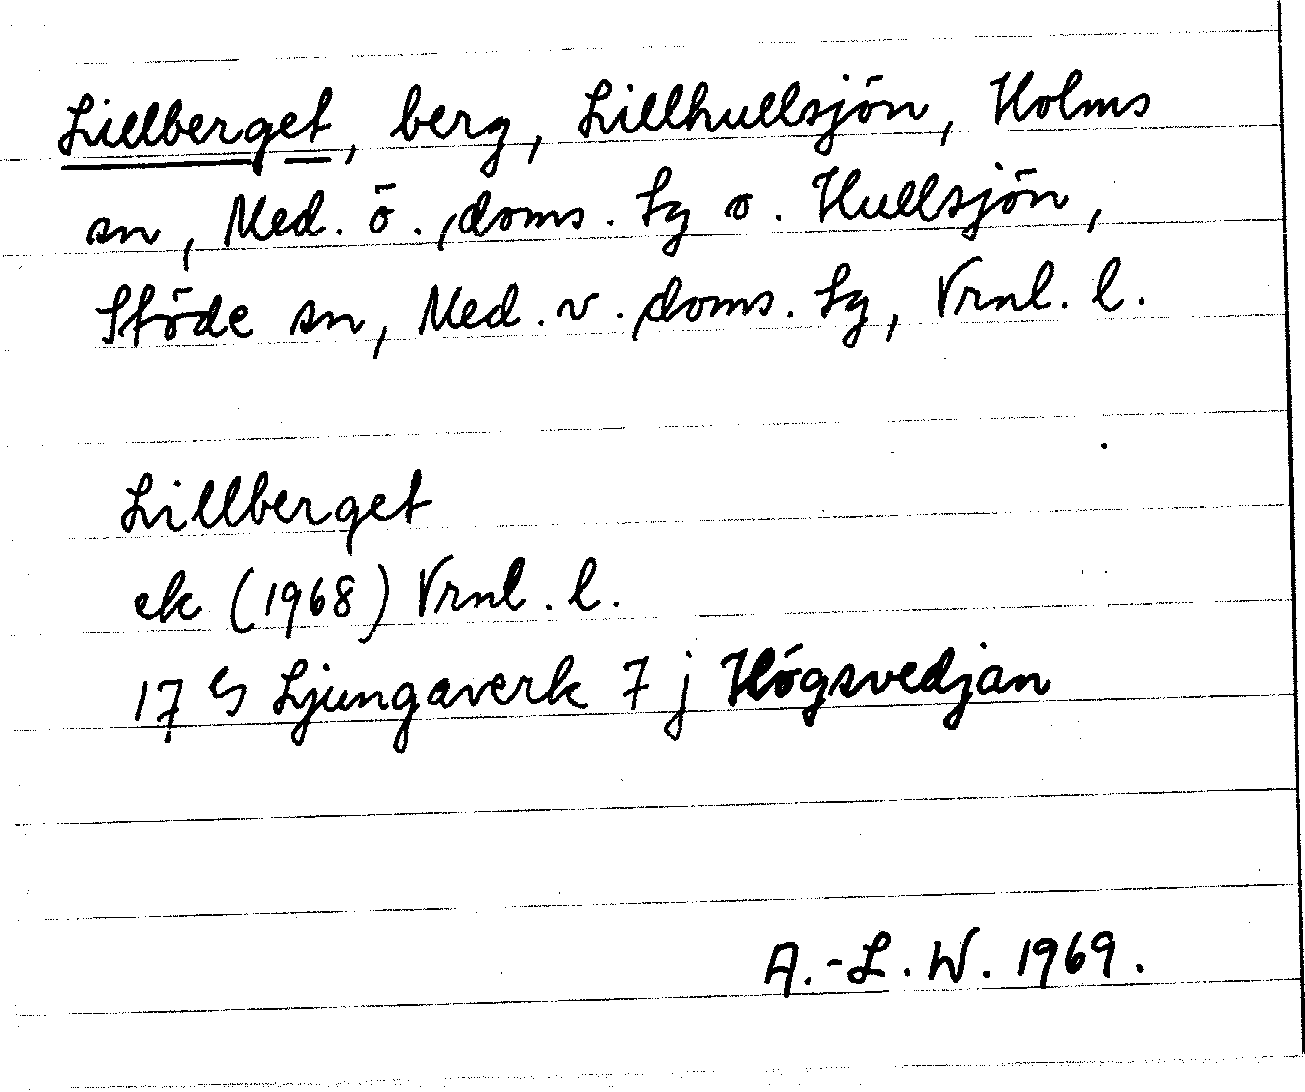 Lillberget, berg, Lillhullsjön, Holms
sn, Med. ö. doms. Lg o. Hullsjön,
Stöde sn, Med. v. doms. Lg, Vrnl. l.
Lillberget
ek (1968) Vrnl. l.
17 G Ljungaverk 7 j Högsvedjan
A.-L. W. 1969.